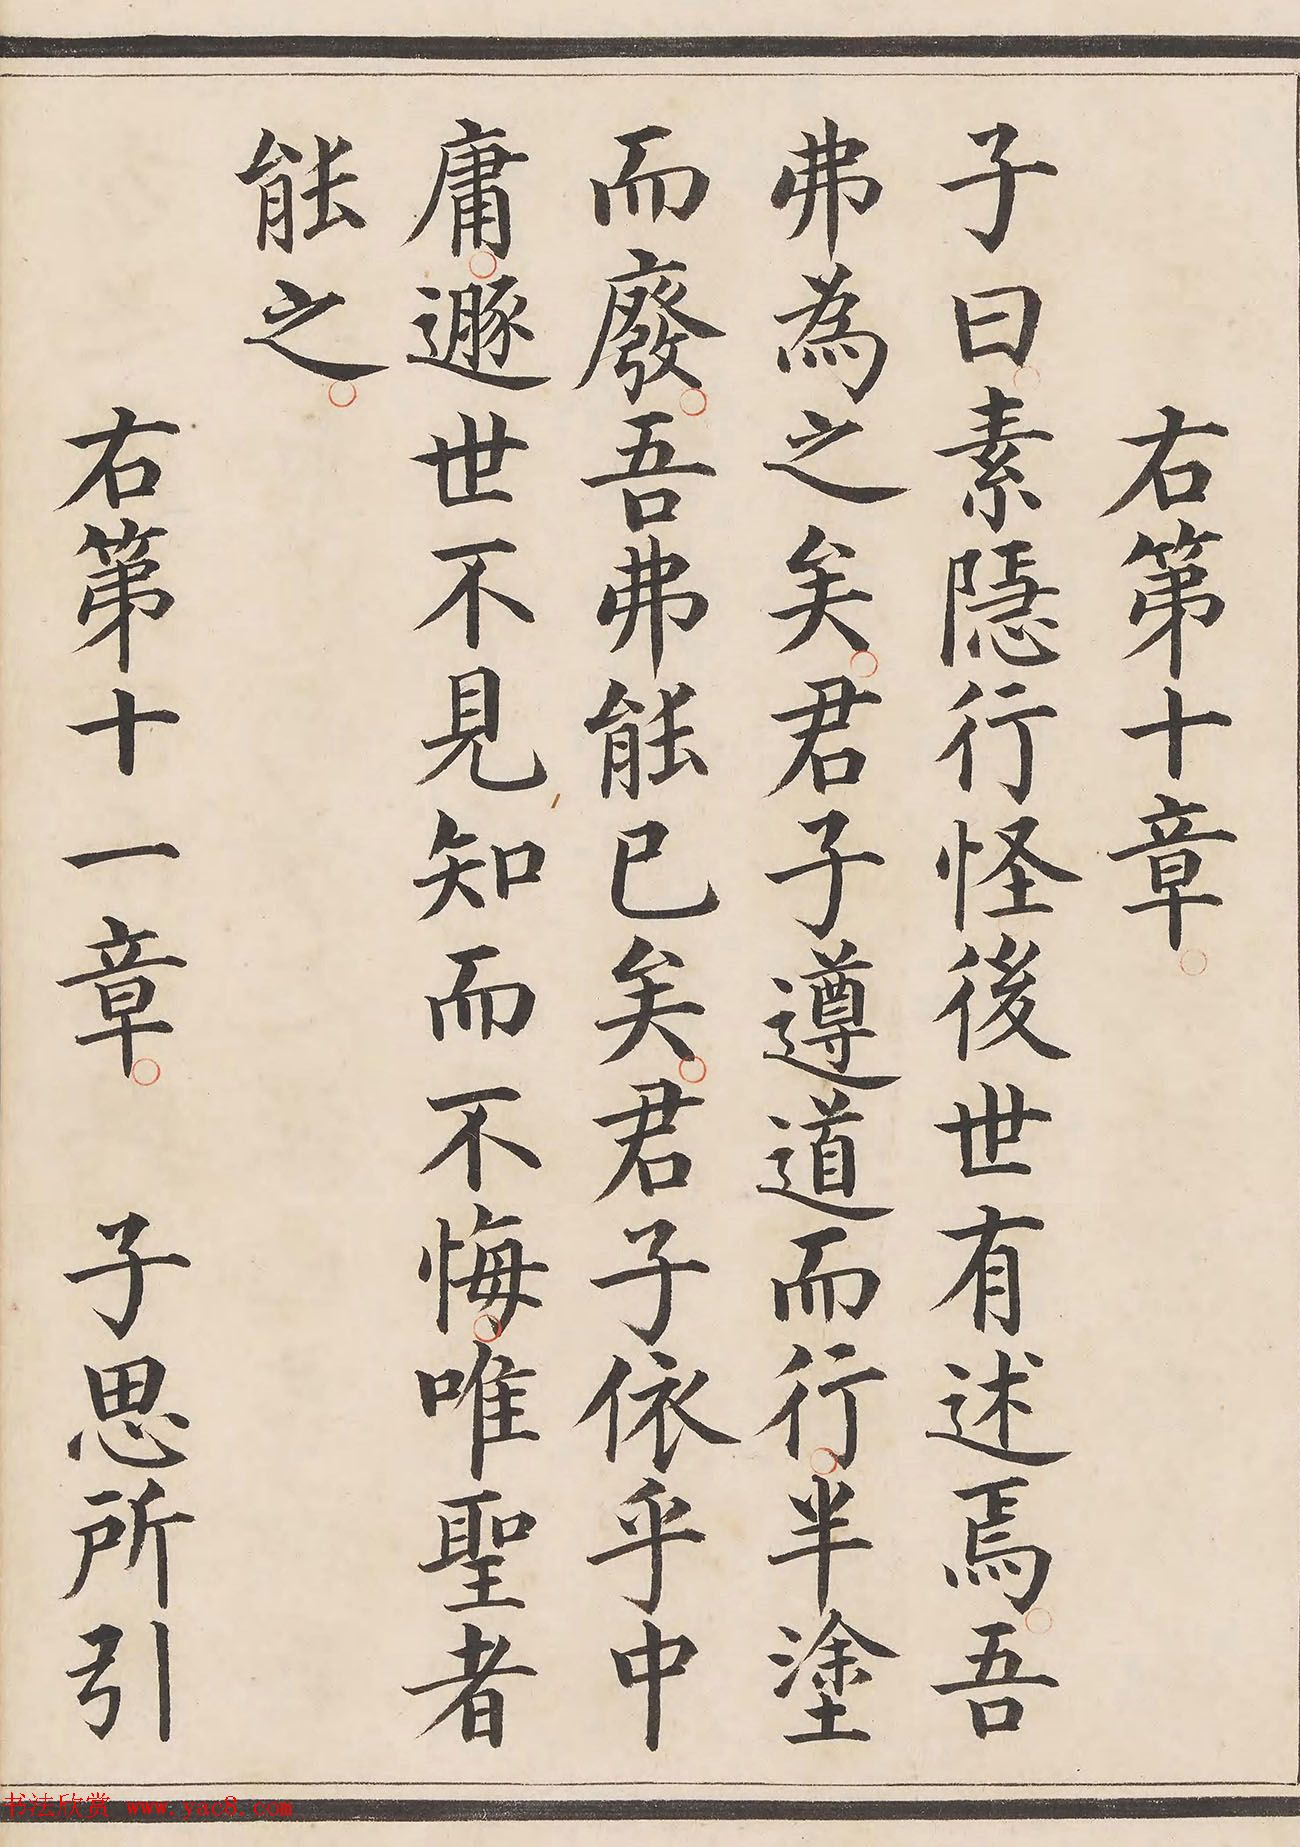 右第十章
子曰素隱行怪後世有述焉吾
弗為之矣君子遵道而行半塗
而廢吾弗能已矣君子依乎中
庸遯世不見知而不悔唯聖者
能之
右第十一章 子思所引
书法欣赏 www.yac8.com